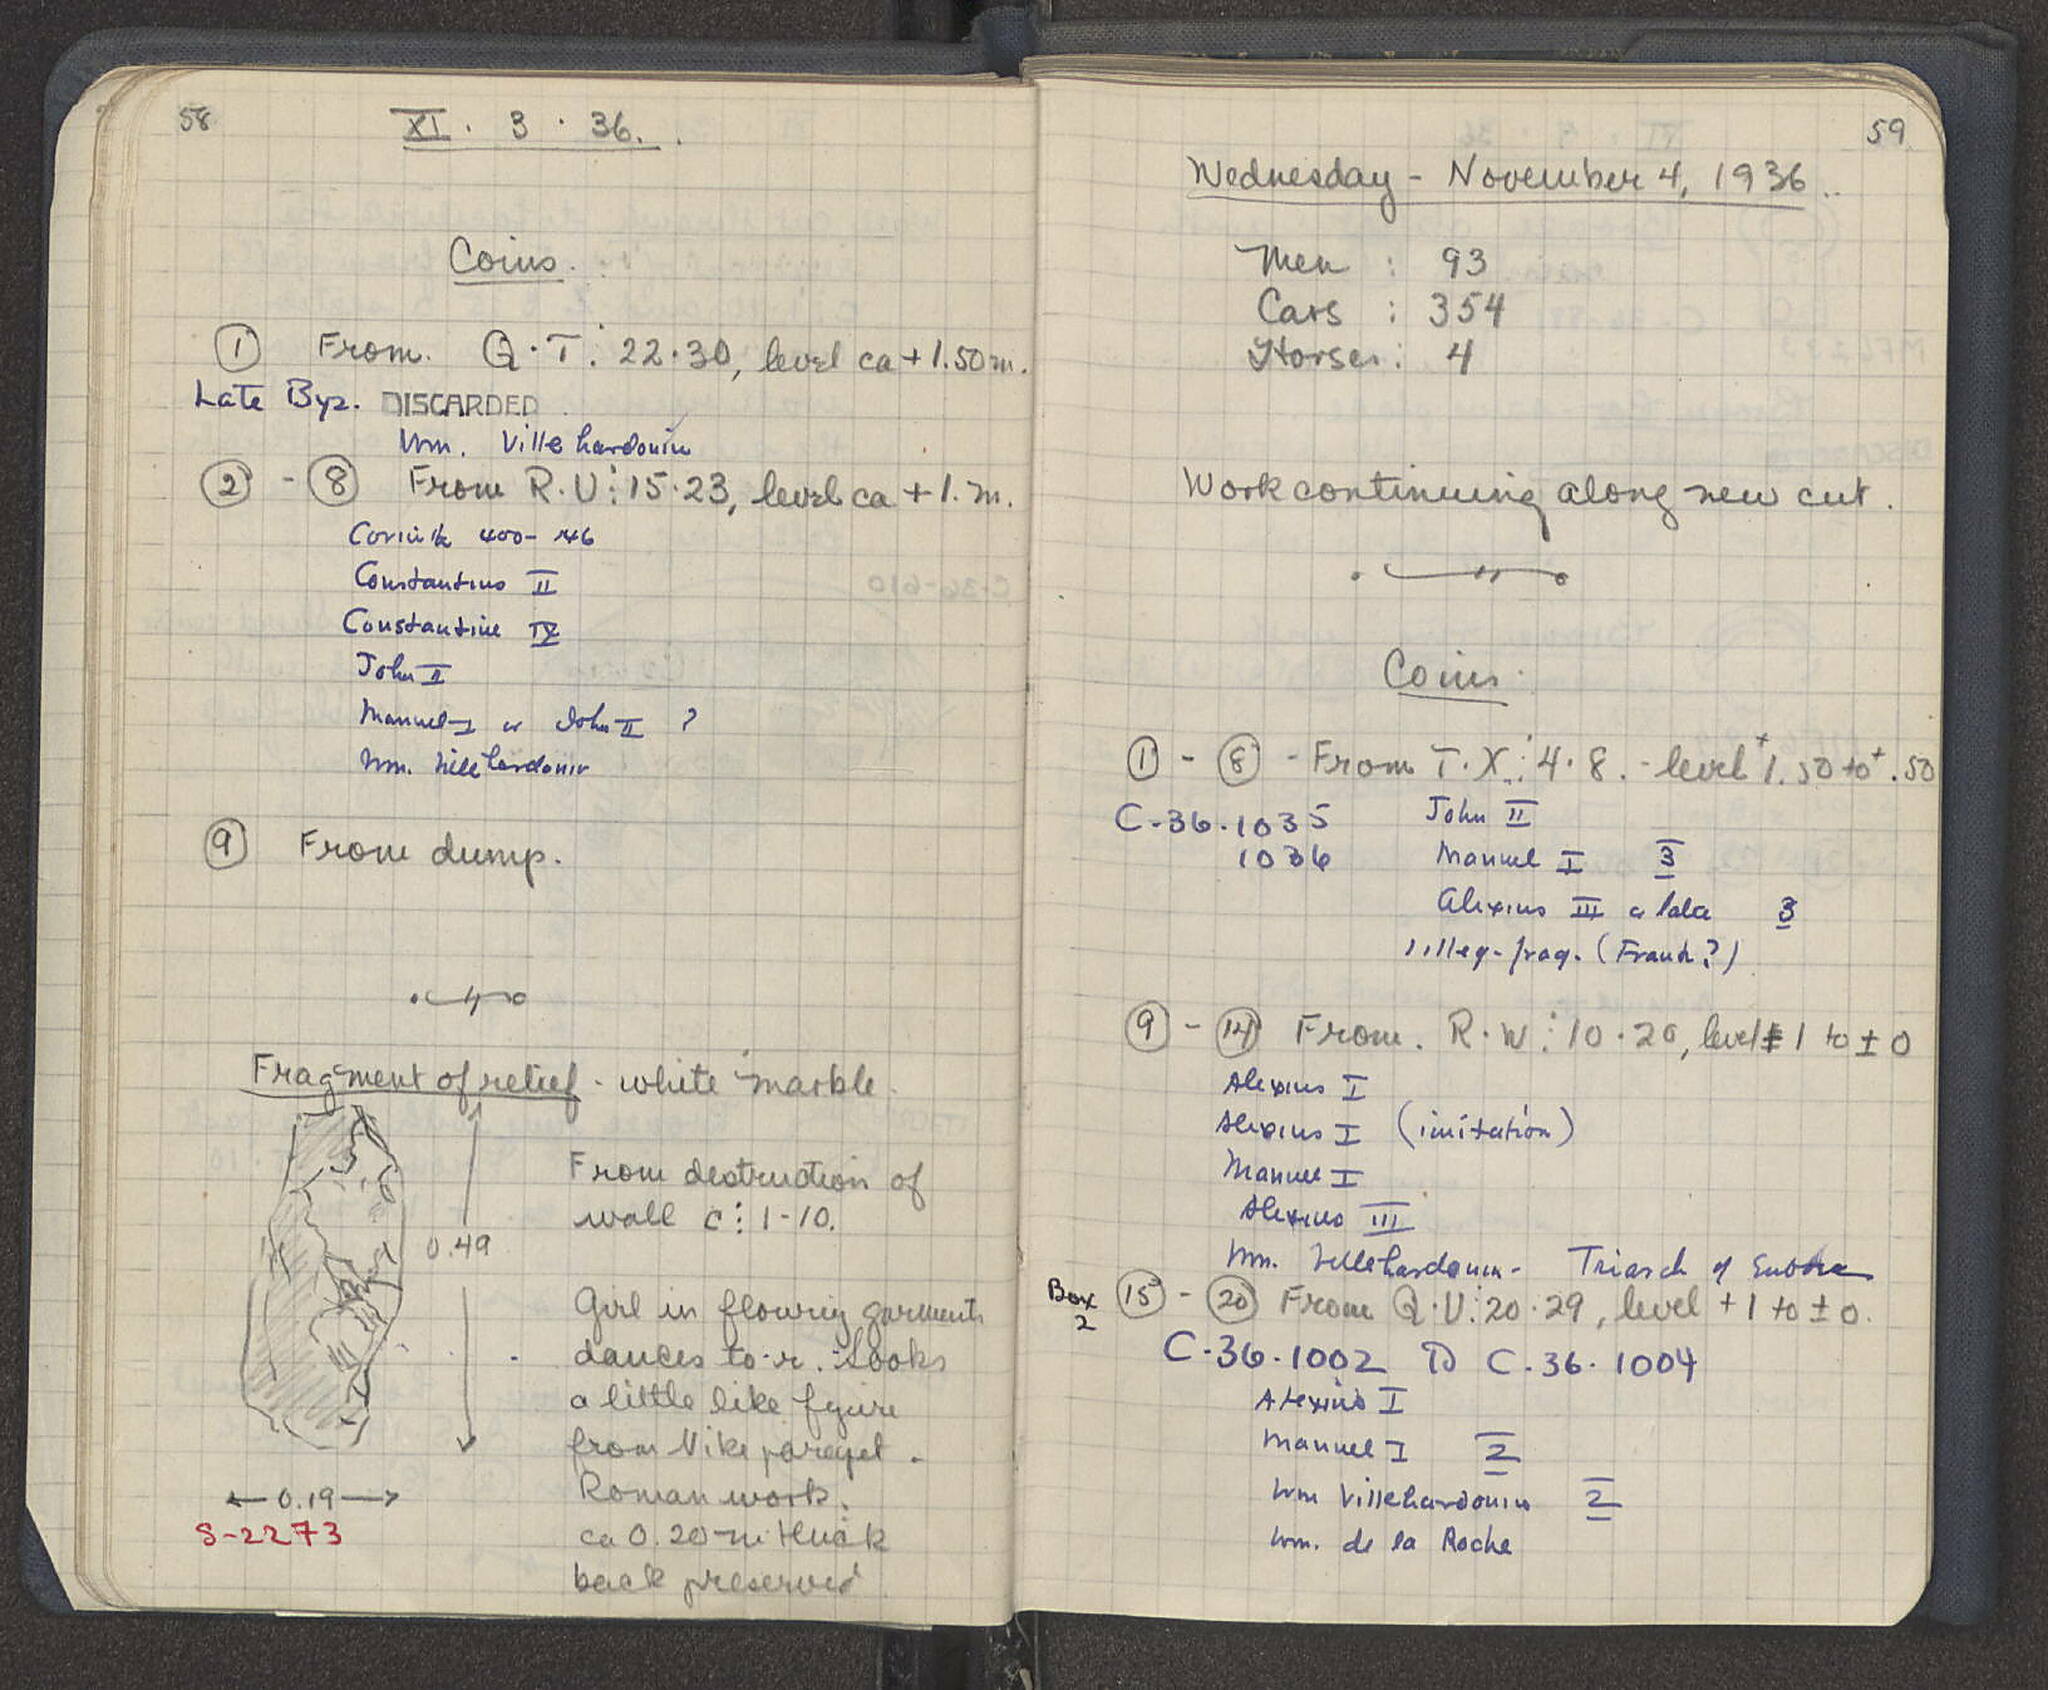 58
XI . 3 . 36.
Coins.
① From. Q.T: 22.30, level ca + 1.50 m.
Late Byz. DISCARDED
Wm. Villehardouin
② - ⑧ From R.U: 15.23, level ca + 1. m.
Corinth 400-146
Constantius II
Constantine IV
John II
Manuel I or John II ?
Wm. Villehardouin
⑨ From dump.
Fragment of relief - white marble.
From destruction of
wall c: 1-10.
0.49
Girl in flowing garments
dances to r. Looks
a little like figure
from Nike parapet.
Roman work.
ca 0.20 m thick
back preserved
← 0.19 →
S-2273
59
Wednesday - November 4, 1936.
Men : 93
Cars : 354
Horses: 4
Work continuing along new cut.
Coins
① - ⑧ - From T.X: 4.8. - level +1.50 to +.50
C-36.1035 John II
1036 Manuel I 3
Alexius III or later 3
1 illeg. frag. (Frank?)
⑨ - ⑭ From. R.W: 10.20, level ± 1 to ± 0
Alexius I
Alexius I (imitation)
Manuel I
Alexius III
Wm. Villehardouin - Triarch of Euboea
Box 2 ⑮ - ⑳ From Q.U: 20.29, level + 1 to ± 0.
C-36.1002 to C-36.1004
Alexius I
Manuel I 2
Wm Villehardouin 2
Wm. de la Roche